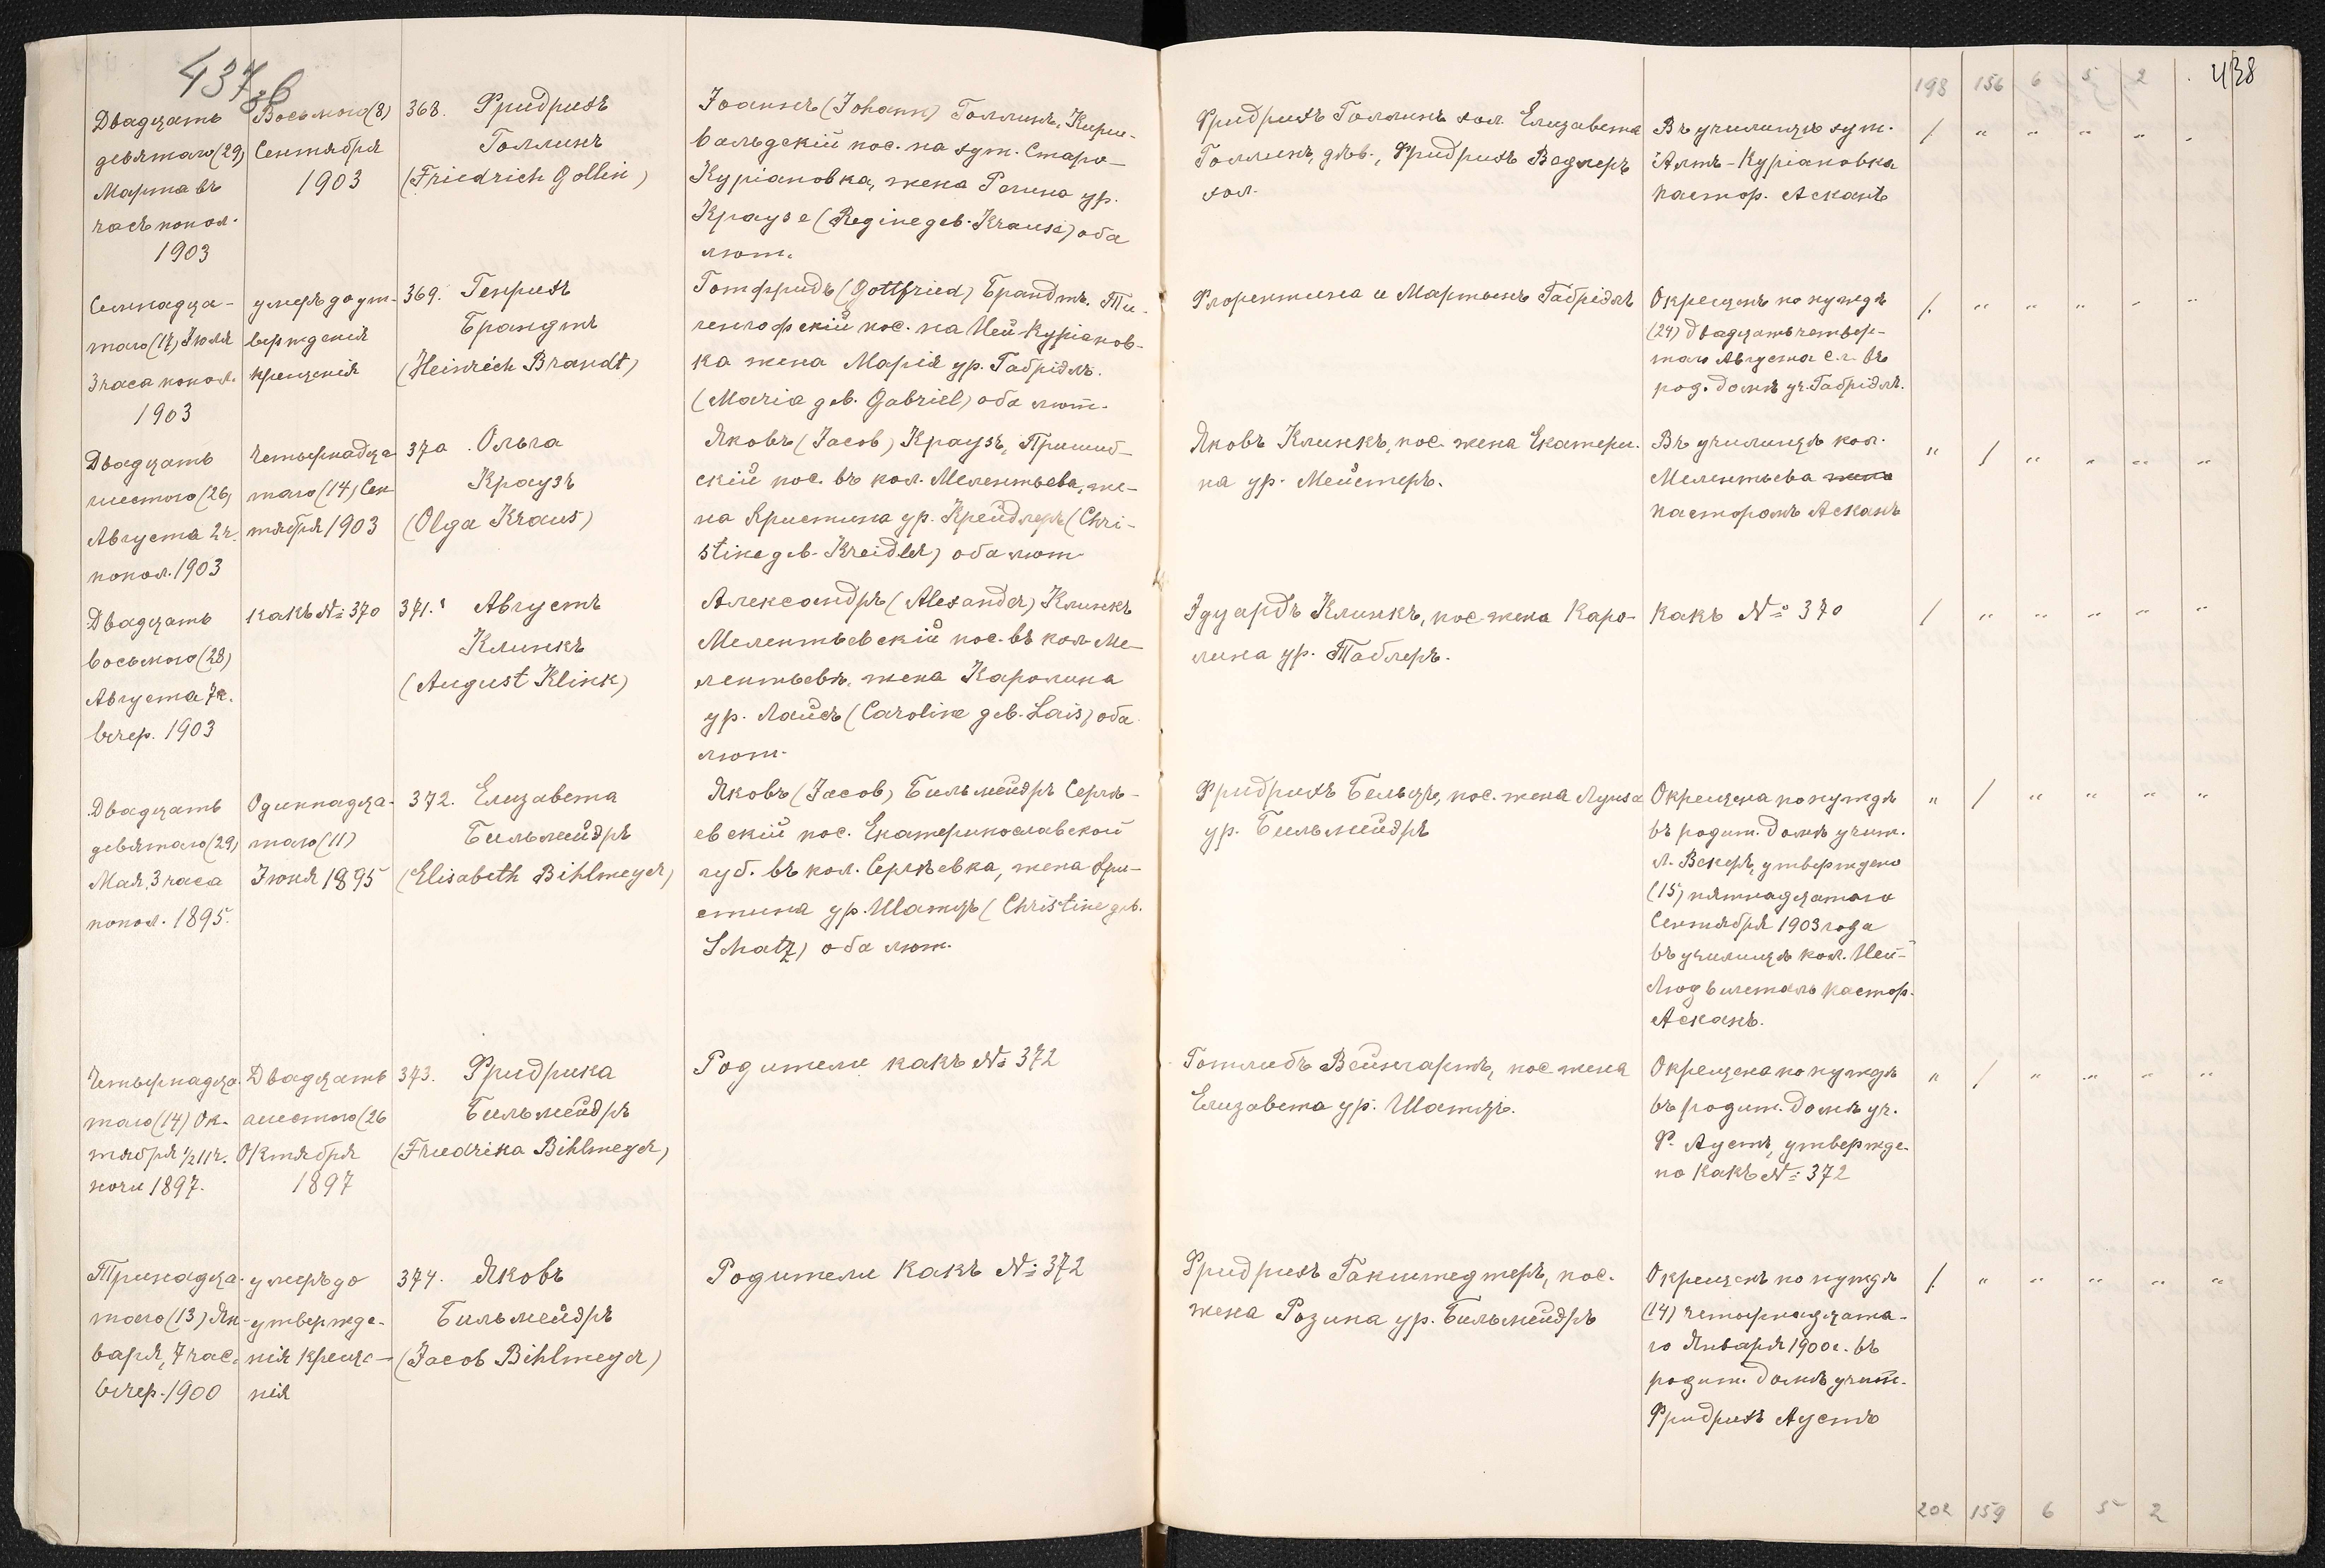 437 зв
438
198 156 6 5 2
Двадцать
девятаго (29)
Марта въ
часъ попол.
1903
Восьмого (8)
Сентября
1903
368. Фридрихъ
Голлинъ
(Friedrich Gollin)
Іоаннъ (Johann) Голлинъ, Кирш-
вальдскій пос. на хут. Старо-
Куріановка, жена Регина ур.
Краузе (Regine geb. Krause) оба
лют.
Фридрихъ Голлинъ хол. Елизавета
Голлинъ, дѣв., Фридрихъ Ведлеръ
хол.
Въ училищѣ хут.
Альт-Куріановка
пастор. Асканъ
/ " " " " "
Семнадца-
таго (17) Іюля
3 часа попол.
1903
умеръ до ут-
вержденія
крещенія
369. Генрихъ
Брандтъ
(Heinrich Brandt)
Готфридъ (Gottfried) Брандтъ. Ти-
генгофскій пос. на Ней-Куріанов-
ка жена Марія ур. Габріэль.
(Maria geb. Gabriel) оба лют.
Флорентина и Мартынъ Габріэль
Окрещенъ по нуждѣ
(24) двадцать четвер-
таго Августа с.г. въ
род. домѣ уч. Габріэль.
/. " " " " "
Двадцать
шестого (26)
Августа 2 ч.
попол. 1903
Четырнадца-
таго (14) Сен-
тября 1903
370. Ольга
Краузъ
(Olga Kraus)
Яковъ (Jacob) Краузъ, Пришиб-
скій пос. въ кол. Мелентьева, же-
на Христина ур. Крейдлеръ (Chri-
stine geb. Kreidler) оба лют.
Яковъ Клинкъ, пос. жена Екатери-
на ур. Мейстеръ.
Въ училищѣ кол.
Мелентьева
пасторомъ Асканъ
" / " " " "
Двадцать
восьмого (28)
Августа 7 ч.
вечер. 1903
какъ № 370
371. Августъ
Клинкъ
(August Klink)
Александръ (Alexander) Клинкъ
Мелентьевскій пос. въ кол. Ме-
лентьевъ, жена Каролина
ур. Лайсъ (Caroline geb. Lais) оба
лют.
Эдуардъ Клинкъ, пос. жена Каро-
лина ур. Таблеръ.
какъ № 370
/ " " " " "
Двадцать
девятаго (29)
Мая, 3 часа
попол. 1895.
Одиннадца-
таго (11)
Іюня 1895
372. Елизавета
Бильмейэръ
(Elisabeth Bihlmeyer)
Яковъ (Jacob) Бильмейэръ Сергѣ-
евскій пос. Екатеринославской
губ. въ кол. Сергѣевка, жена Хри-
стина ур. Шатцъ (Christine geb.
Schatz) оба лют.
Фридрихъ Бельцъ, пос. жена Луиза
ур. Бильмейэръ
Окрещена по нуждѣ
въ родит. домѣ учит.
Л. Векеръ, утверждено
(15) пятнадцатаго
Сентября 1903 года
въ училищѣ кол. Ней-
Людвигсталь пастор.
Асканъ.
" / " " " "
Четырнадца-
таго (14) Ок-
тября ½11 ч.
ночи 1897.
Двадцать
шестого (26
Октября
1897
373. Фридрика
Бильмейэръ
(Friedrika Bihlmeyer)
Родители какъ № 372
Готлибъ Вейнгартъ, пос. жена
Елизавета ур. Шатцъ.
Окрещена по нуждѣ
въ родит. домѣ уч.
Ф. Аустъ, утвержде-
но какъ № 372
" / " " " "
Тринадца-
таго (13) Ян-
варя, 7 час.
вечер. 1900
умеръ до
утвержде-
нія креще-
нія
374. Яковъ
Бильмейэръ
(Jacob Bihlmeyer)
Родители какъ № 372
Фридрихъ Гакштедтеръ, пос.
жена Розина ур. Бильмейэръ
Окрещенъ по нуждѣ
(14) четырнадцата-
го Января 1900 г. въ
родит. домѣ учит.
Фридрихъ Аустъ
/. " " " " "
202 159 6 5 2